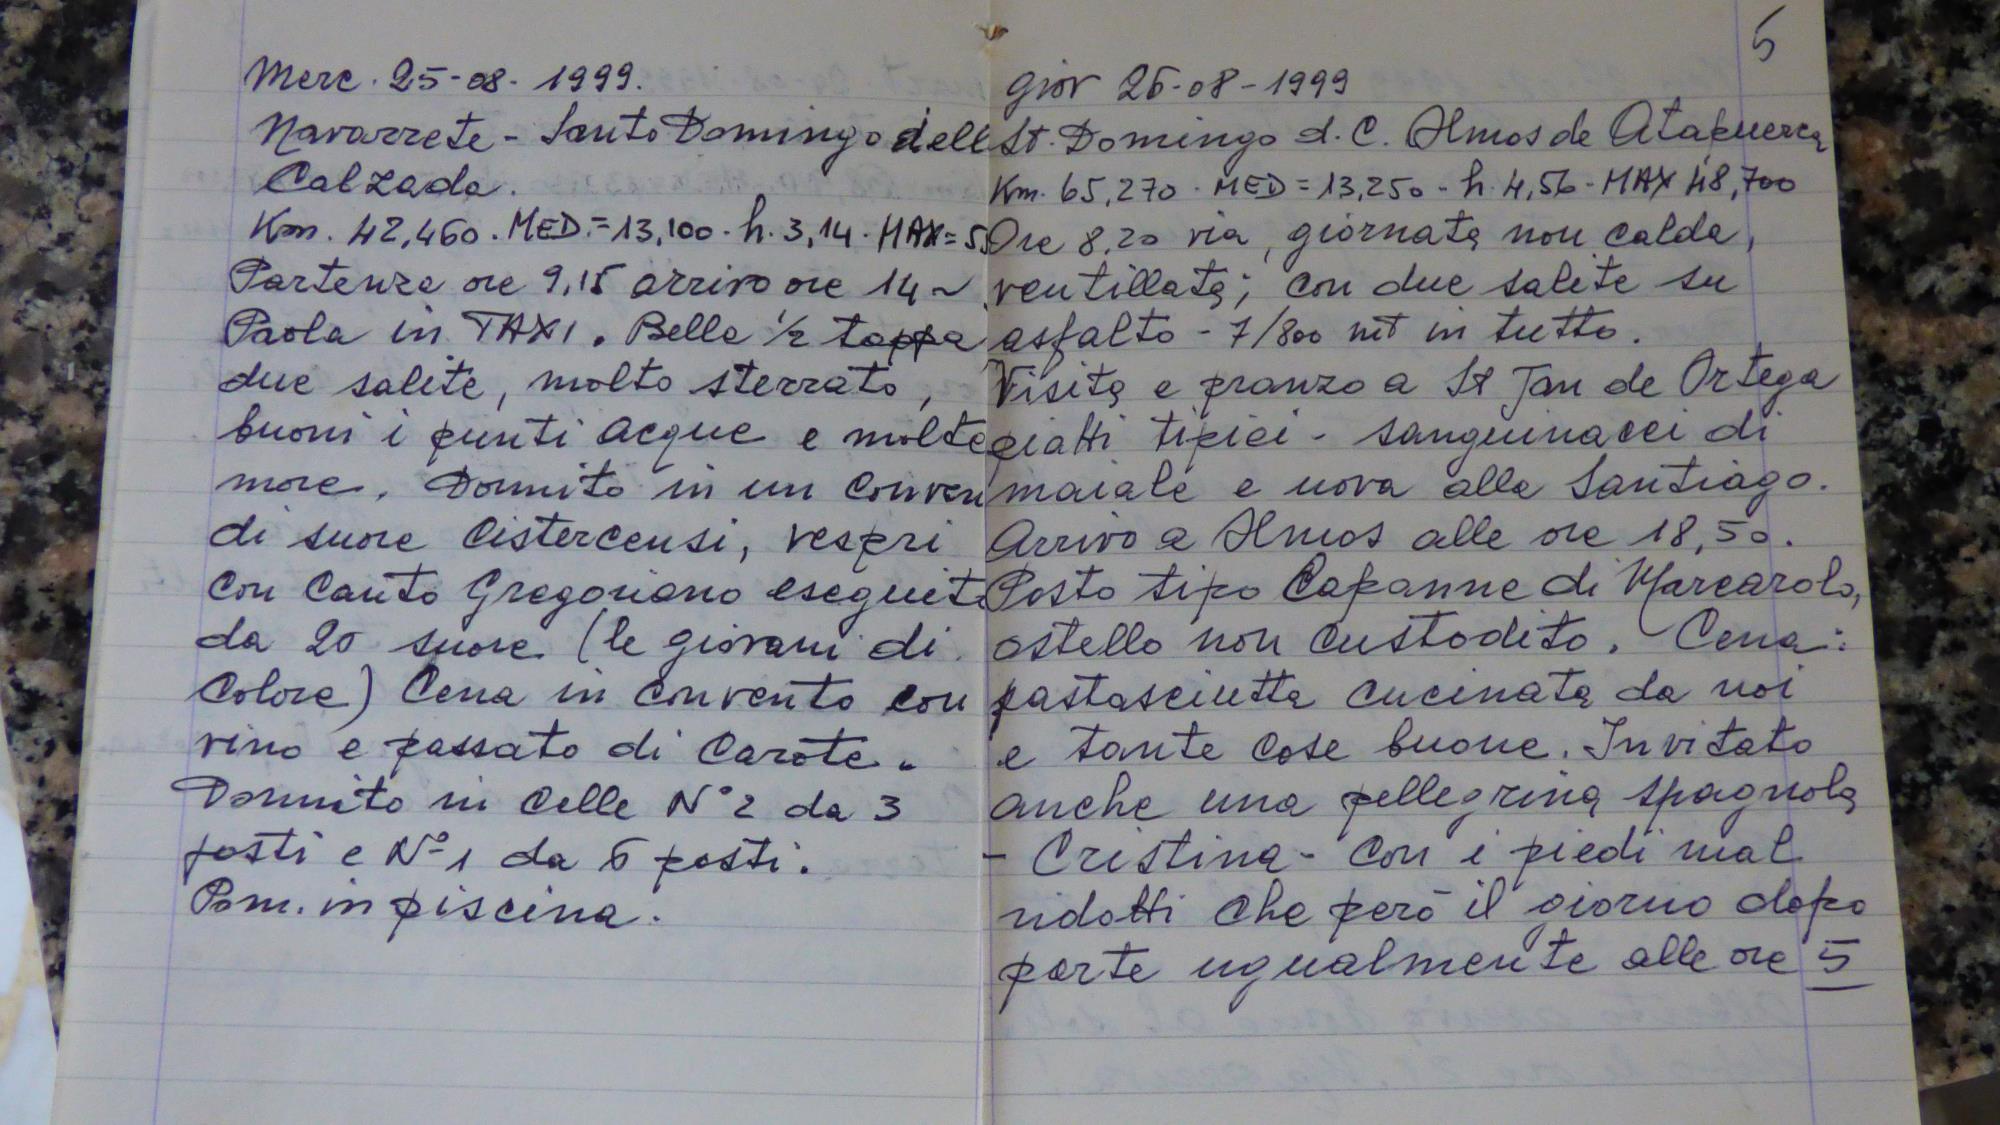 Merc. 25-08-1999.
Navarrete - Santo Domingo dell
Calzada.
Km. 42,460. MED.=13,100. h. 3,14. MAX=5
Partenza ore 9,15 arrivo ore 14 ~
Paola in TAXI. Bella 1/2 tappa
due salite, molto sterrato,
buoni i punti acque e molte
more. Dormito in un conven
di suore Cistercensi, vespri
con canto Gregoriano eseguit
da 20 suore (le giovani di
colore) Cena in convento con
vino e passato di carote.
Dormito in celle N° 2 da 3
posti e N° 1 da 6 posti.
Pom. in piscina.
5
giov 26-08-1999
St. Domingo d. C. Olmos de Atapuerca
Km. 65,270. MED=13,250 - h. 4,56 - MAX 48,700
Ore 8.20 via, giornata non calda,
ventillata; con due salite su
asfalto - 7/800 mt in tutto.
Visita e pranzo a St Jan de Ortega
piatti tipici - sanguinacci di
maiale e uova alla Santiago.
Arrivo a Olmos alle ore 18,50.
Posto tipo Capanne di Marcarolo,
ostello non custodito. Cena:
pastasciutta cucinata da noi
e tante cose buone. Invitato
anche una pellegrina spagnola
- Cristina - con i piedi mal
ridotti che però il giorno dopo
parte ugualmente alle ore 5